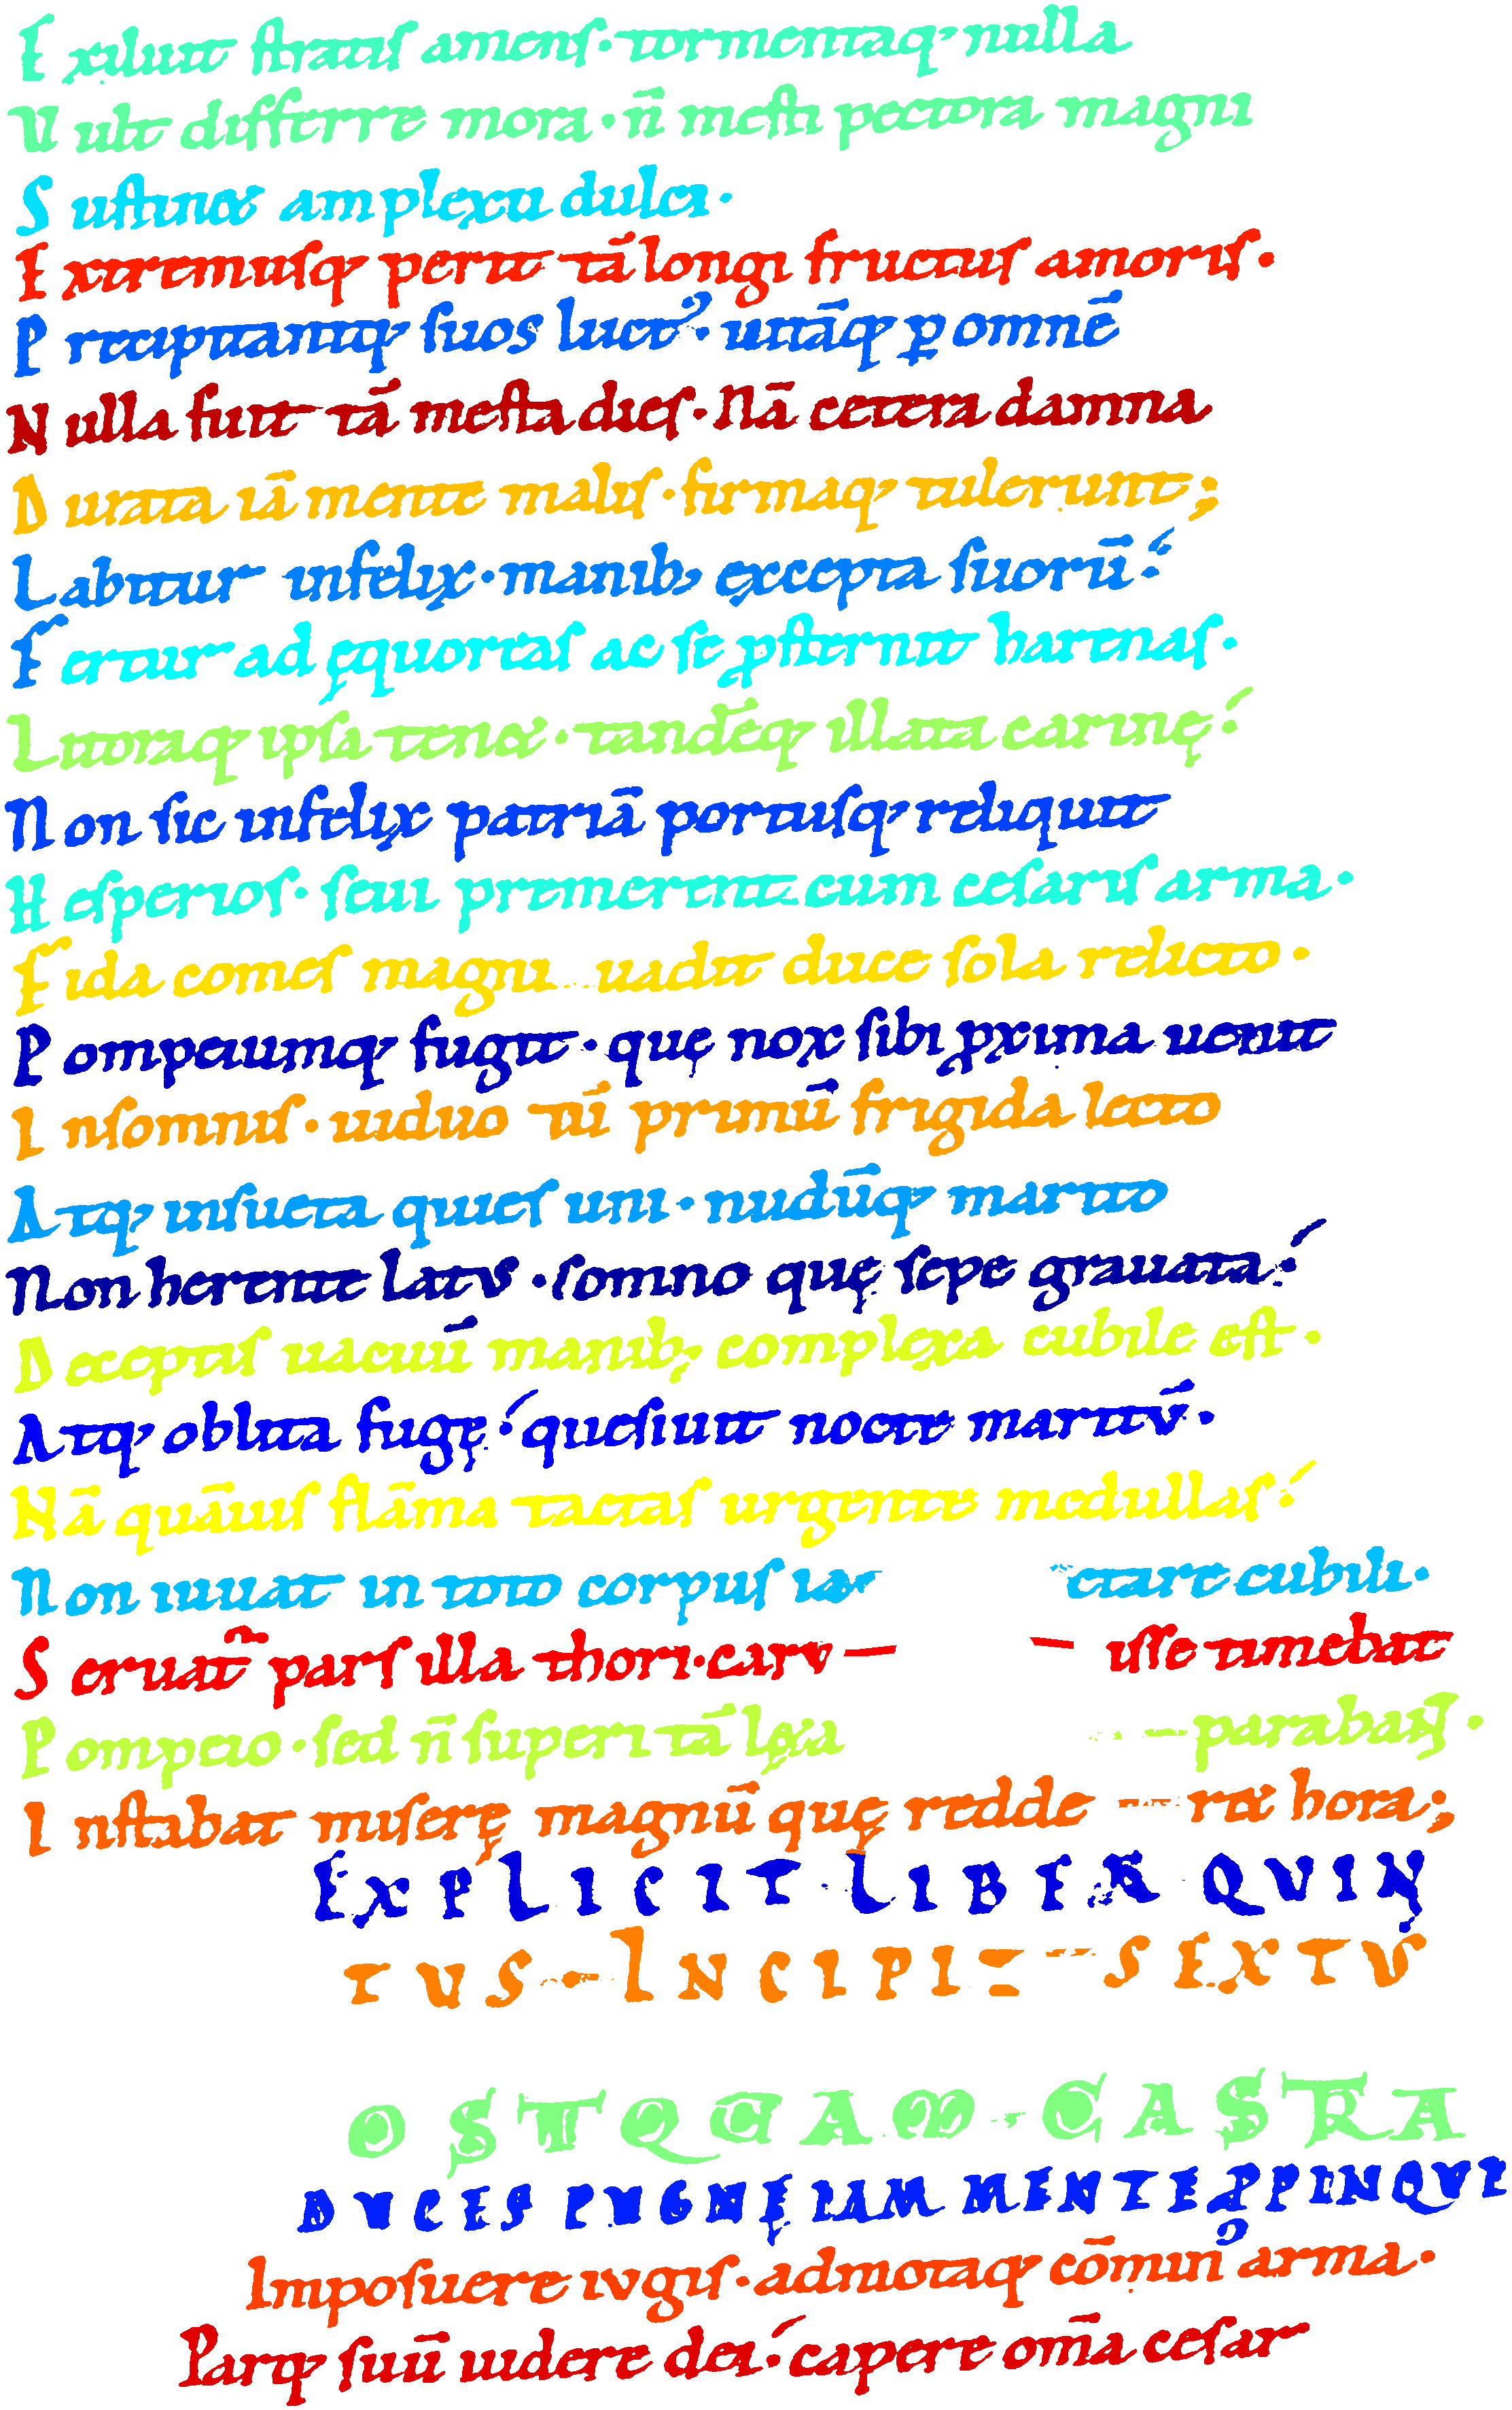 E xiluit stratis amens· tormentaq; nulla
V ult differre mora· n̄ mesti pectora magni
S ustin& amplexu dulci·
E xtremusq; perit tā longi fructus amoris·
P recipitantq; suos luctꝰ· uitāq; ꝑ omnē
N ulla fuit tā mesta dies· Nā cetera damna
D urata iā mente malis· firmaq; tulerunt;
Labitur infelix· manib; excepta suorū·
F ertur ad ęquoreas ac se ꝓsternit harenas·
Litoraq; ipsa ten&· tandēq; illata carinę·
N on sic infelix patriā portusq; reliquit
H esperios· seui premerent cum cesaris arma·
F ida comes magni uadit duce sola relicto·
P ompeiumq; fugit· quę nox sibi ꝓxima uenit
I nsomnis· uiduo tū primū frigida lecto
Atq; insueta quies uni· nudūq; marito
Non herente latus· somno quę sepe grauata·
D eceptis uacuū manib; complexa cubile est·
Atq; oblita fugę· quesiuit nocte maritū·
Nā quāuis flāma tactas urgente medullas·
N on iuuat in toto corpus ctare cubili·
S eruat̄ pars illa thori· car usse timebat
P ompeio· sed n̄ superi tā l&a parabant·
I nstabat miserę magnū quę redde r& hora;
EXPLICIT LIBER QUIN
TUS INCIPIT SEXTUS
OSTQUAM CASTRA
DUCES PUGNĘ IAM MENTE ꝒPINQUE
Imposuere iugis· admotaq; cōminꝰ arma·
Parq; suū uidere dei· capere om̄a cesar